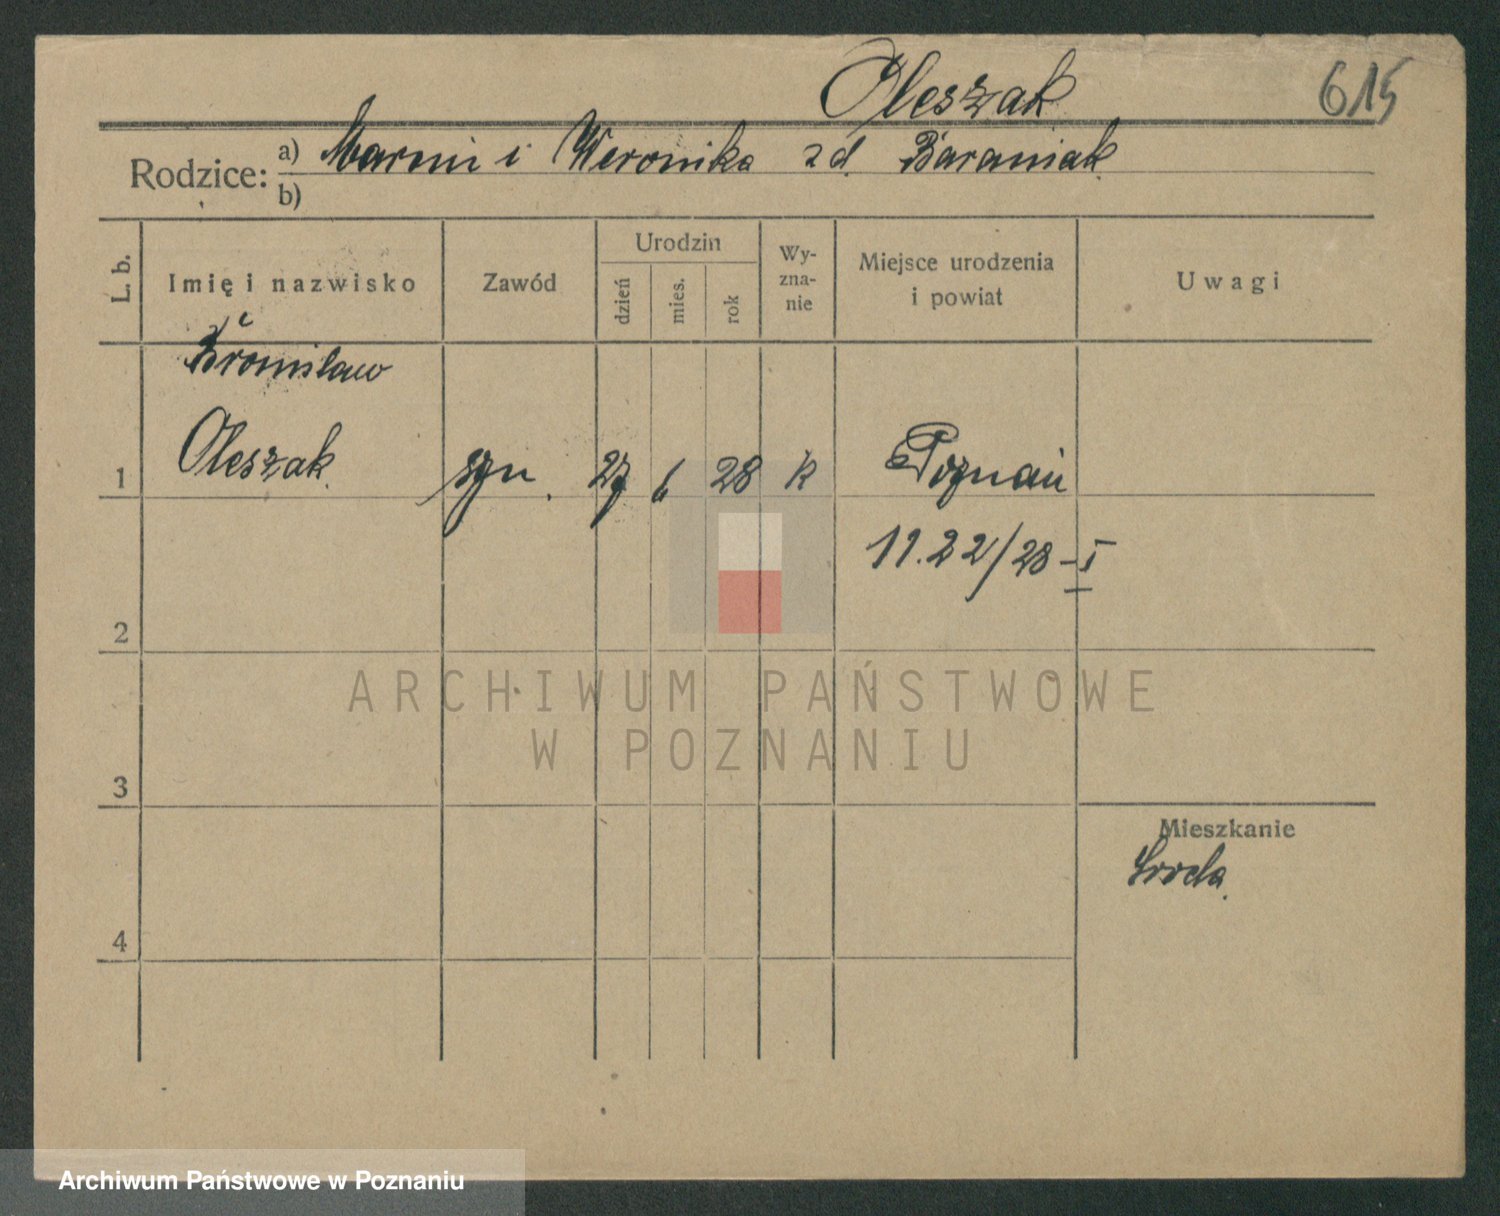 Oleszak 615
Rodzice: a) Marcin i Weronika zd. Baraniak
b)
L. b.
Imię i nazwisko
Zawód
Urodzin
dzień
mies.
rok
Wy-
zna-
nie
Miejsce urodzenia
i powiat
Uwagi
Bronisław
1 Oleszak syn. 27 6 28 k Poznań
11.22/28-I
2
3
4
Mieszkanie
Środa
ARCHIWUM PAŃSTWOWE
W POZNANIU
Archiwum Państwowe w Poznaniu